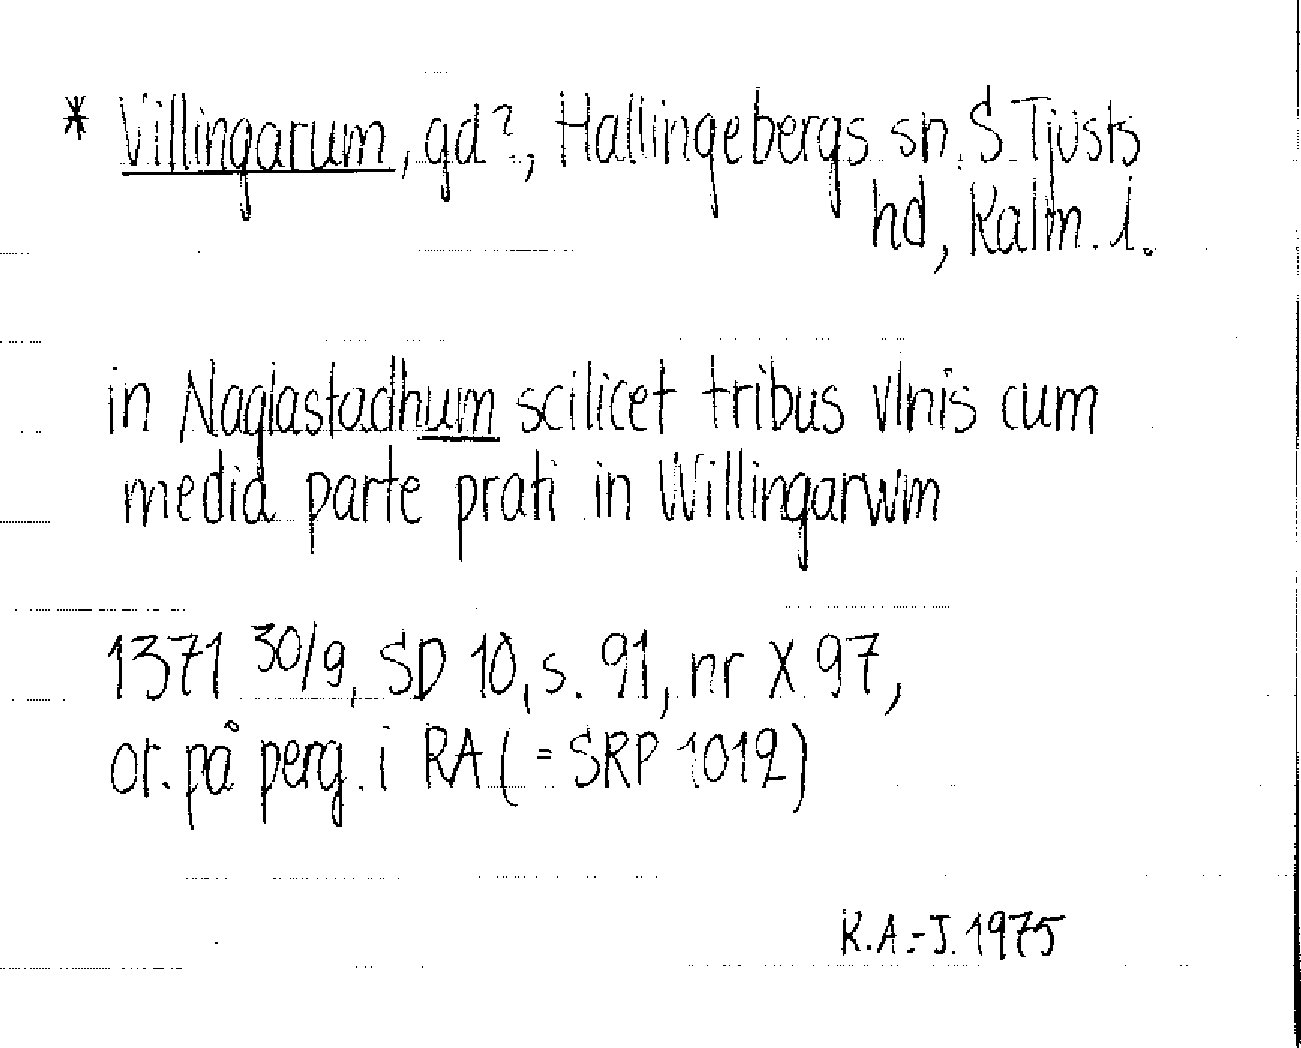 * Villingarum, gd?, Hallingebergs sn, S Tjusts
hd, Kalm. l.
in Naglastadhum scilicet tribus vlnis cum
media parte prati in Willingarwm
1371 30/9, SD 10, s. 91, nr X 97,
or. på perg. i RA (= SRP 1012)
K.A.-J. 1975